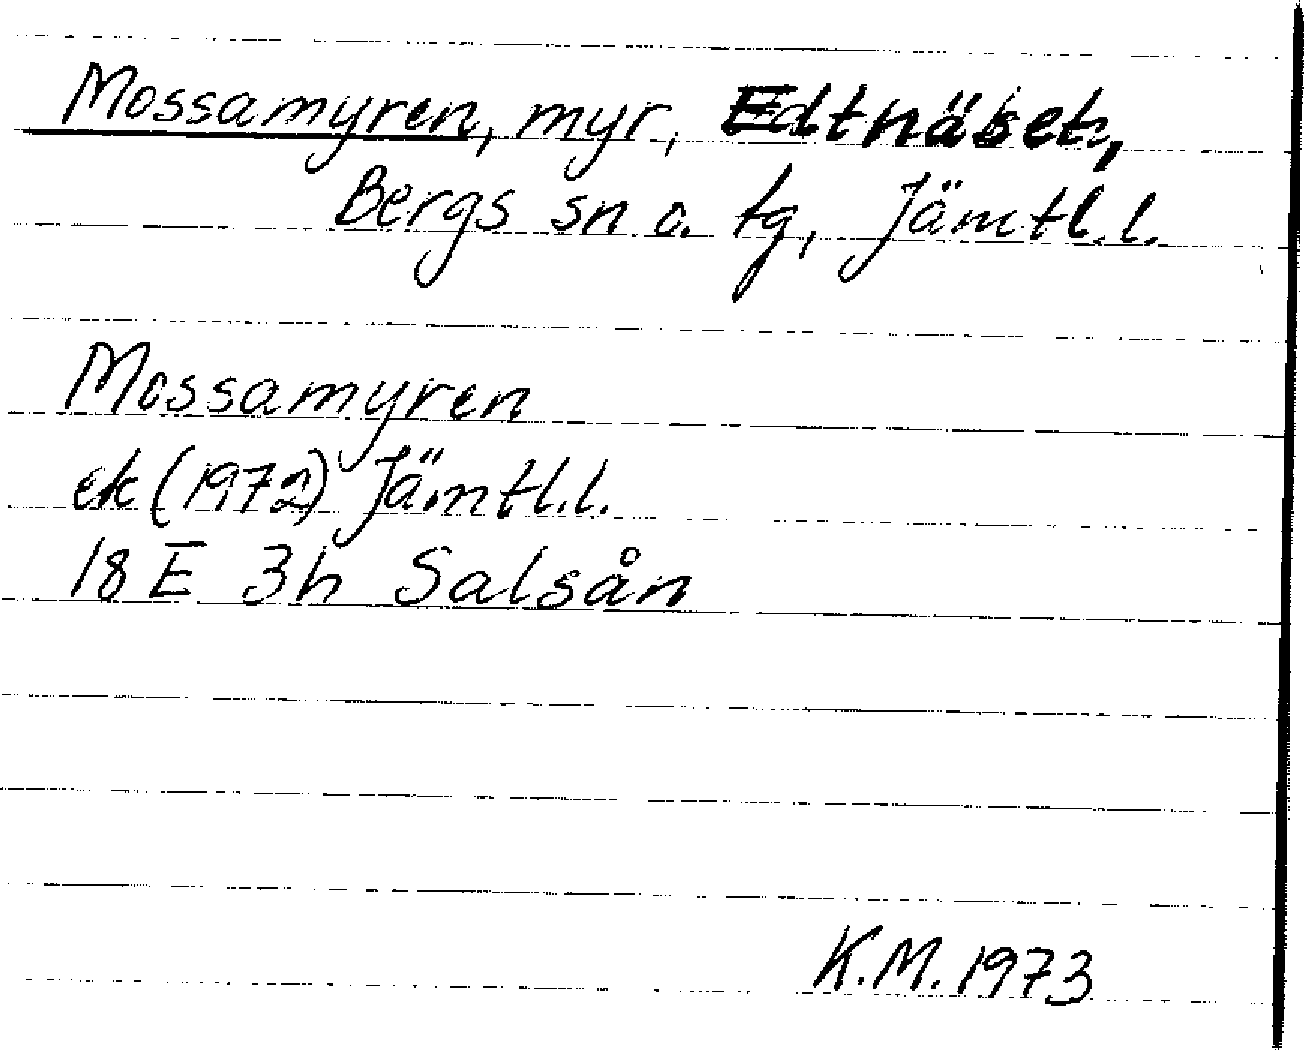 Mossamyren, myr,
Bergs sn o. tg, Jämtl.l.
Mossamyren
ek (1972) Jämtl.l.
18 E 3h Salsån
K.M. 1973